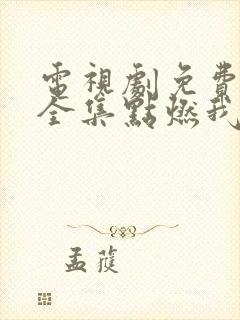 電視劇免費
全集點燃我
孟蓰